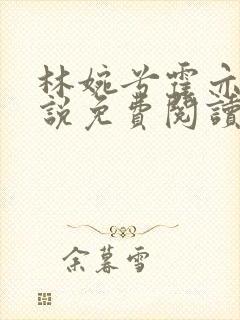 林婉兮霆亦
說免費閱讀
余暮雪